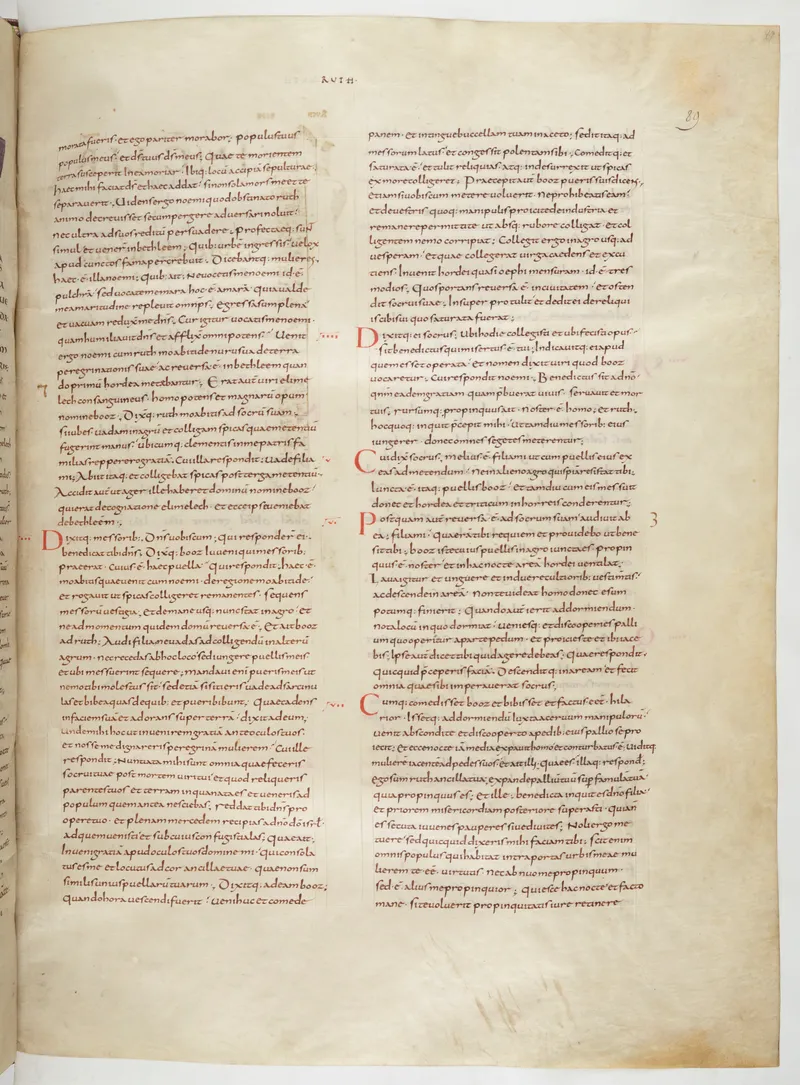 RUTH·
89
morata fueris et ego pariter morabor; populus tuus
populus meus· et ds̄ tuus ds̄ meus; Quae te morientem
terra susceperit In ea moriar· Ibiq; locū accipiā sepulturae;
haec mihi faciat dn̄s et haec addat· si non sola mors me et te
separauerit; Uidens ergo noemi quod obstinato ruth
animo decreuisset secum pergere aduersari noluit·
nec ultra ad suos reditū persuadere; profectaeq; sun̄
simul et uener̄ in bethleem; Quib· urbē ingressis uelox
apud cunctos fama percrebuit· Dicebantq; mulieres;
haec· ē· illa noemi; Quib· ait; Ne uocetis me noemi id· ē·
pulchrā sed uocate me mara hoc· ē· amarā· quia ualde
me amaritudine repleuit omnip̄s; Egressa sum plena
et uacuam reduxit me dn̄s; Cur igitur uocatis me noemi·
quam humiliauit dn̄s et afflixit omnipotens; Uenit
ergo noemi cum ruth moabitide nuru sua de terra
peregrinationis suae· ac reuersa· ē· in bethleem quan
do primū hordea metebantur; Erat autē uiri elime
lech consanguineus· homo potens et magnarū opum
nomine booz; Dixitq; ruth moabitis ad socrū suam;
si iubes uadam in agrū et colligam spicas quae metentiū
fugerint manus· ubicumq; clementis in me patris fa
milias reppererogratiā; Cui illa respondit; Uade filia
mi; Abiit itaq; et colligebat spicas post terga metentiū·
Accidit autē ut ager ille haberet dominū nomine booz·
qui erat de cognatione elimelech· et ecce ipse ueniebat
de bethleem·
Dixitq; messorib; Dn̄s uobiscum; qui responder̄ ei·
benedicat tibi dn̄s; Dixitq; booz Iuueni qui messorib;
praeerat· cuius· ē· haec puella· Qui respondit; haec· ē·
moabitis quae uenit cum noemi· de regione moabitide·
et rogauit ut spicas colligeret remanentes· sequens
messorū uestigia; et de mane usq; nunc stat in agro· et
ne ad momentum quidem domū reuersa· ē; Et ait booz
ad ruth; Audi filia ne uadas ad colligendū in alterū
agrum· nec recedas ab hoc loco sed iungere puellis meis
et ubi messuerint sequere; mandaui enī pueris meis ut
nemo tibi molestus sit· sed etiā si sitieris uade ad sarcinu
las et bibe aquas de quib; et pueri bibunt; Quae cadens
in faciem suā et adorans super terrā· dixit ad eum;
unde mihi hoc ut inuenirem gratiā ante oculos tuos·
et nosse me digneris peregrinā mulierem· Cui ille
respondit; Nuntiata mihi sunt omnia quae feceris
socrui tuae post mortem uiri tui· et quod reliqueris
parentes tuos et terram in qua nata es et ueneris ad
populum quem antea nesciebas; reddat tibi dn̄s pro
opere tuo· et plenam mercedem recipias a dn̄o dō isr̄l·
ad quem uenisti et sub cuius confugisti alas; Quae ait;
Inueni gratiā apud oculos tuos domine mi· qui consola
tus es me et locutus ad cor ancillae tuae· quae non sum
similis unius puellarū tuarum; Dixitq; ad eam booz;
Quando hora uescendi fuerit· ueni huc et comede
panem· et intingue buccellam tuam in aceto; sedit itaq; ad
messorum latus et congessit polentam sibi; Comeditq; et
saturata ē· et tulit reliquias· atq; inde surrexit ut spicas
ex more colligeret; Praecepit autē booz pueris suis dicens;
etiam si uobiscum metere uoluerit· ne prohibeatis eam·
et de uestris quoq; manipulis proicite de industria et
remanere permittite· ut absq; rubore colligat· et col
ligentem nemo corripiat; Collegit ergo in agro usq; ad
uesperam· et quae collegerat uirga caedens et excu
tiens· Inuenit hordei quasi oephi mensuram· id· ē· tres
modios; Quos portans reuersa· ē· in ciuitatem· et osten
dit socrui suae; Insuper protulit et dedit ei de reliqui
is cibi sui quo saturata fuerat;
Dixitq; ei socrus; Ubi hodie collegisti et ubi fecisti opus·
sit benedictus qui misertus· ē· tui; Indicauitq; ei apud
quem esset operata· et nomen dixit uiri quod booz
uocaretur; Cui respondit noemi; Benedictus sit a dn̄o·
qn̄m eadem gratiam quam p̄buerat uiuis· seruauit et mor
tuis; rursumq; propinquus ait· noster· ē· homo; et ruth·
hoc quoq; inquit p̄cepit mihi· ut tamdiu messorib; eius
iungerer· donec omnes segetes meterentur;
Cui dixit socrus; melius· ē· filia mi ut cum puellis eius ex
eas ad metendum· ne in alieno agro quispiā resistat tibi;
Iuncta· ē· itaq; puellis booz· et tamdiu cum eis messuit
donec et hordea et triticum in horreis conderentur;
Postquam autē reuersa· ē· ad socrum suam· audiuit ab
ea; filia mi· Quaerā tibi requiem et prouidebo ut bene
sit tibi; booz iste cuius puellis in agro iuncta es· propin
quus· ē· noster· et in hac nocte areā hordei uentilat;
Lauaigitur et unguere et induere cultiorib; uestimtis
ac descende in areā· non te uideat homo donec esum
potumq; finierit; Quando autē ierit ad dormiendum·
nota locū in quo dormiat· Ueniesq; et discooperies palli
um quo operitur a parte pedum· et proicies te et ibi iace
bis; Ipse autē dicet tibi quid agere debeas; Quae respondit·
quicquid p̄ceperis faciā; Descenditq; in aream et fecit
omnia quae sibi imperauerat socrus;
Cumq; comedisset booz et bibisset et factus eēt· hila
rior· Issetq; ad dormiendū iuxta aceruum manipulorū·
uenit abscondite et discooperto a pedib; eius pallio se pro
iecit; et ecce nocte iā media expauit homo et conturbatus· ē; Uiditq;
mulierē iacentē ad pedes suos et ait illi; quae es· illaq; respond;
ego sum ruth ancilla tua; expande palliū tuū sup famulā tuā·
quia propinquus es; Et ille; benedicta inquit es dn̄o filia·
et priorem misericordiam posteriore superasti· quia n̄
es secuta iuuenes pauperes siue diuites; Noli ergo me
tuere sed quicquid dixeris mihi faciam tibi; scit enim
omnis populus qui habitat intra portas urbis meae mu
lierem te eē· uirtutis· nec abnuo me propinquum·
sed· ē· alius me propinquior; quiesce hac nocte et facto
mane· si te uoluerit propinquitatis iure retinere
3